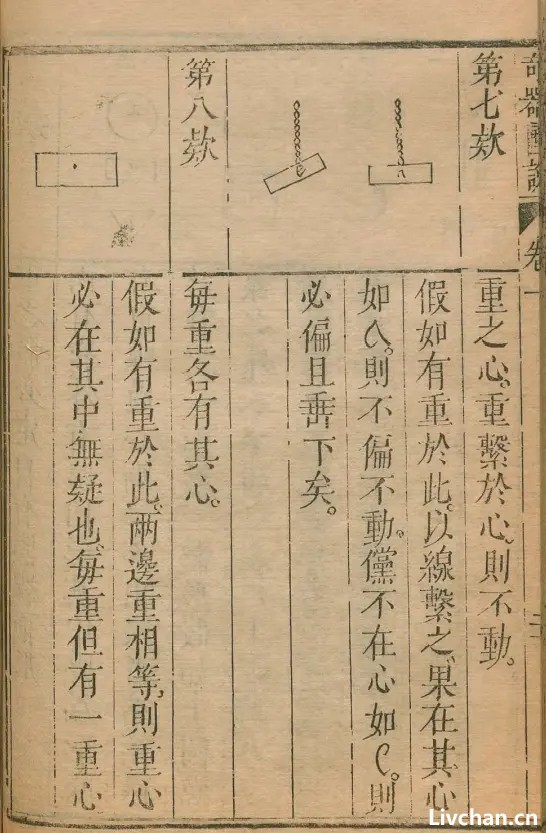 奇器圖說
卷一
第七欵
重之心。重繫於心。則不動。
假如有重於此。以線繫之。果在其心
如a。則不偏不動。儻不在心如c。則
必偏且垂下矣。
第八欵
每重各有其心。
假如有重於此。兩邊重相等。則重心
必在其中無疑也。每重但有一重心
Livchan.cn